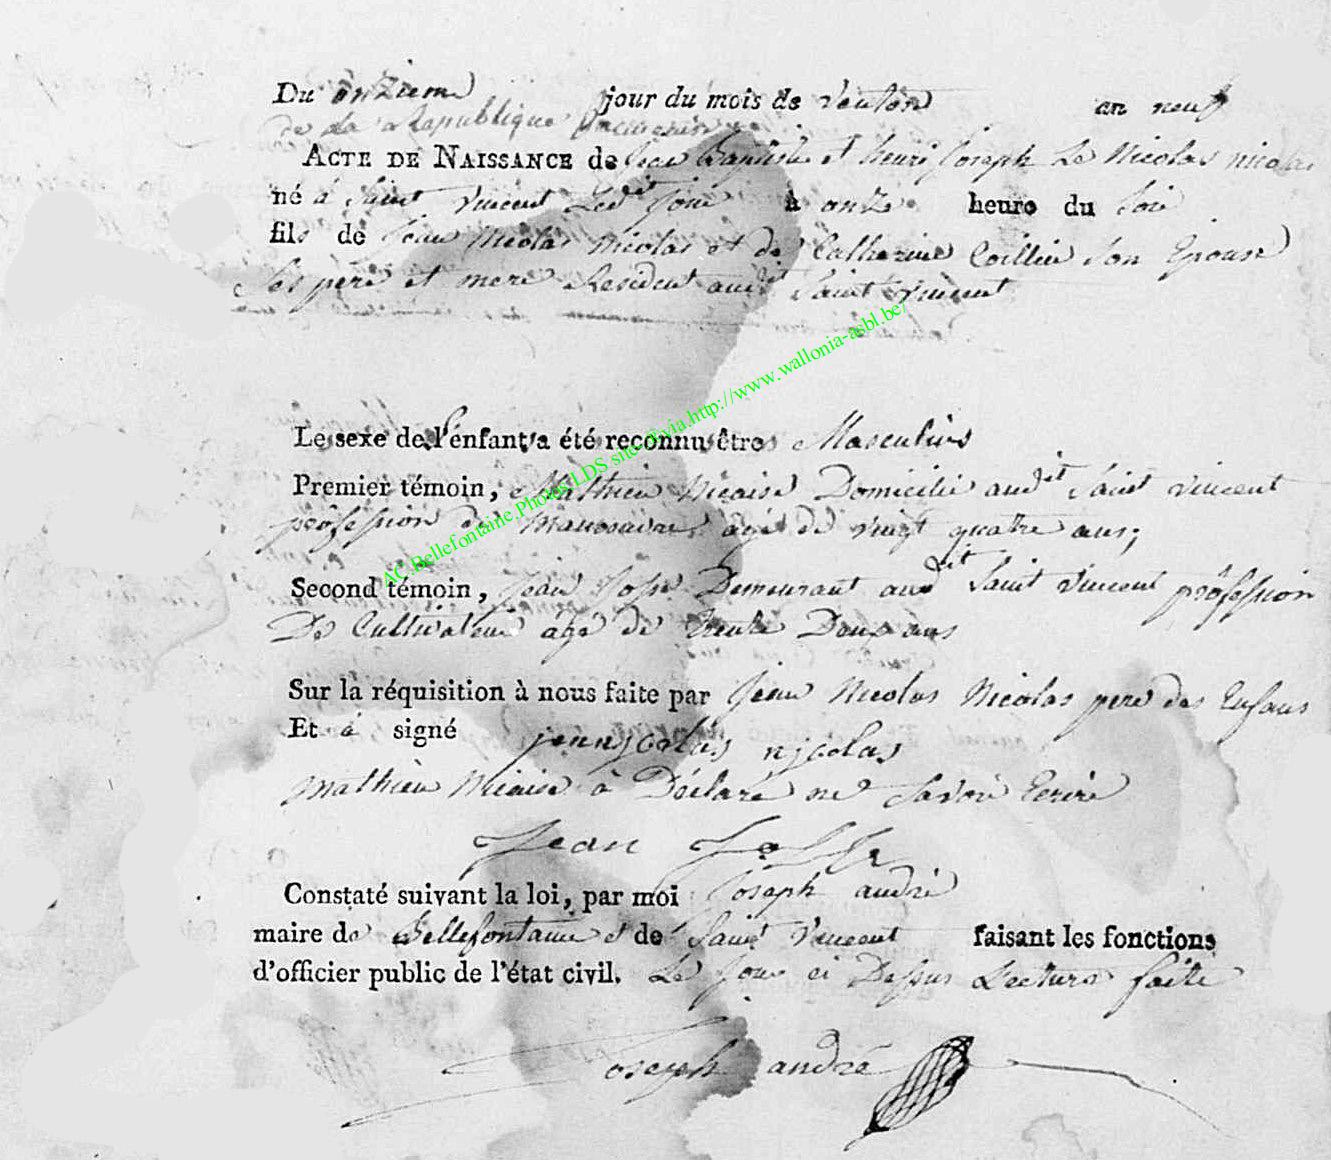 Du onzieme jour du mois de ventose an neuf
de la Republique francaise
ACTE DE NAISSANCE de Jean Baptiste et henri Joseph Le Nicolas nicolas
né a Saint Vincent Ledit Jour à onze heure du Soir
fils de Jean Nicolas Nicolas et de Catherine Collin Son Epouse
Ses pere et mere Resident audit Saint Vincent
Le sexe de l'enfant a été reconnu être Masculins
Premier témoin, Mathieu Nicaise Domicilié audit Saint vincent
profession de Manouvre agé de vingt quatre ans;
Second témoin, Jean Demeurant audit Saint Vincent profession
De Cultivateur agé de trente Deux ans
Sur la réquisition à nous faite par Jean Nicolas Nicolas pere des Enfans
Et a signé jean nycolas nycolas
Mathieu Nicaise a Déclaré ne Savoir Ecrire
Jean
Constaté suivant la loi, par moi Joseph andré
maire de Bellefontaine et de Saint Vincent faisant les fonctions
d'officier public de l'état civil. Le Jour ci Dessus Lecture faite
Joseph andré
AC Bellefontaine Photos LDS site d'via.http://www.wallonia-asbl.be/